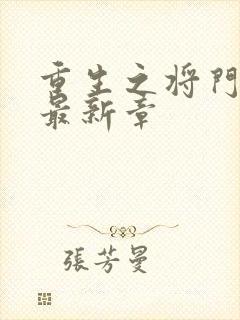 重生之将門
最新章
張芳曼